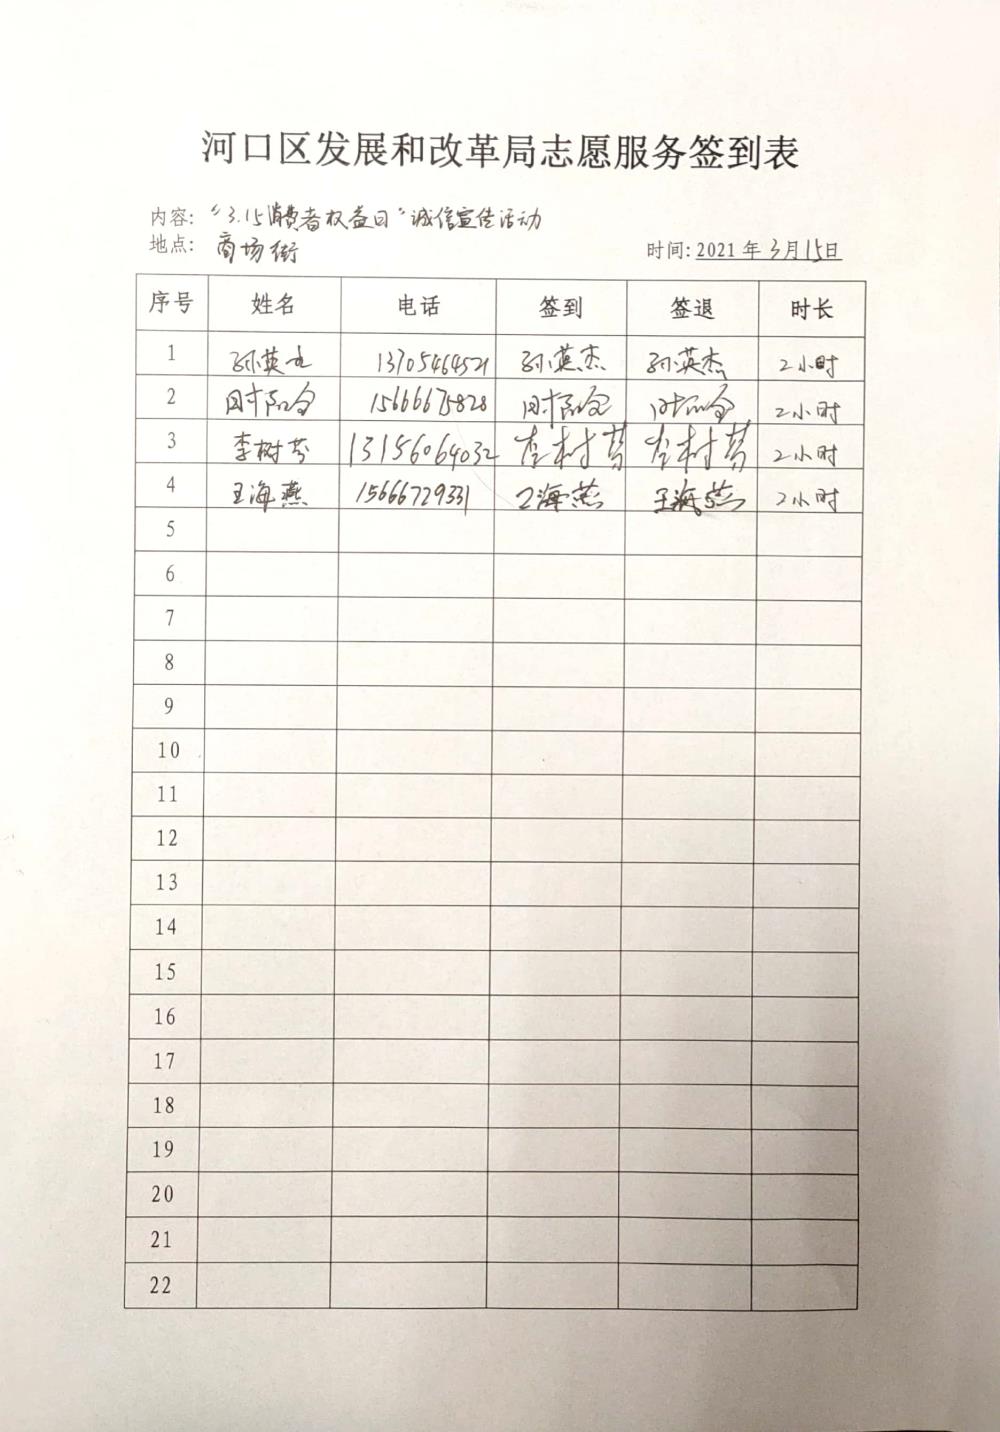 河口区发展和改革局志愿服务签到表
内容: “3.15消费者权益日”诚信宣传活动
地点: 商场街
时间: 2021 年 3月15日
序号 姓名 电话 签到 签退 时长
1 孙英杰 13705464521 孙英杰 孙英杰 2小时
2 15666675828 2小时
3 李树芬 13156064032 李树芬 李树芬 2小时
4 王海燕 15666729331 王海燕 王海燕 2小时
5
6
7
8
9
10
11
12
13
14
15
16
17
18
19
20
21
22